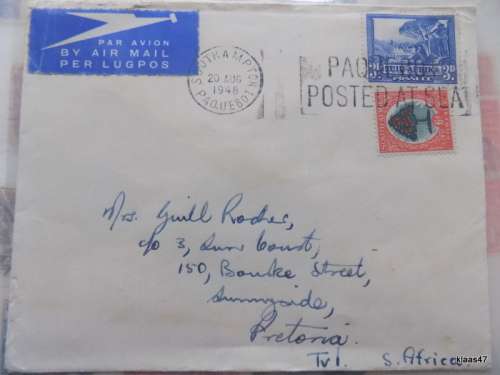 PAR AVION
BY AIR MAIL
PER LUGPOS
SOUTHAMPTON
20 AUG
1948
PAQUEBOT
PAQ
POSTED AT SEA
3D 3D
Mrs. Guill
c/o 3, Sun Court,
150, Bourke Street,
Sunnyside,
Pretoria.
Tvl. S. Africa.
klaas47